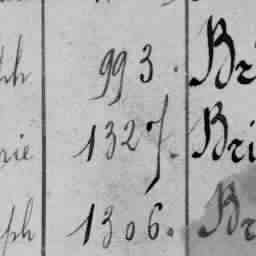 ph 993. Bri
rie 1327. Bri
ph 1306. Br